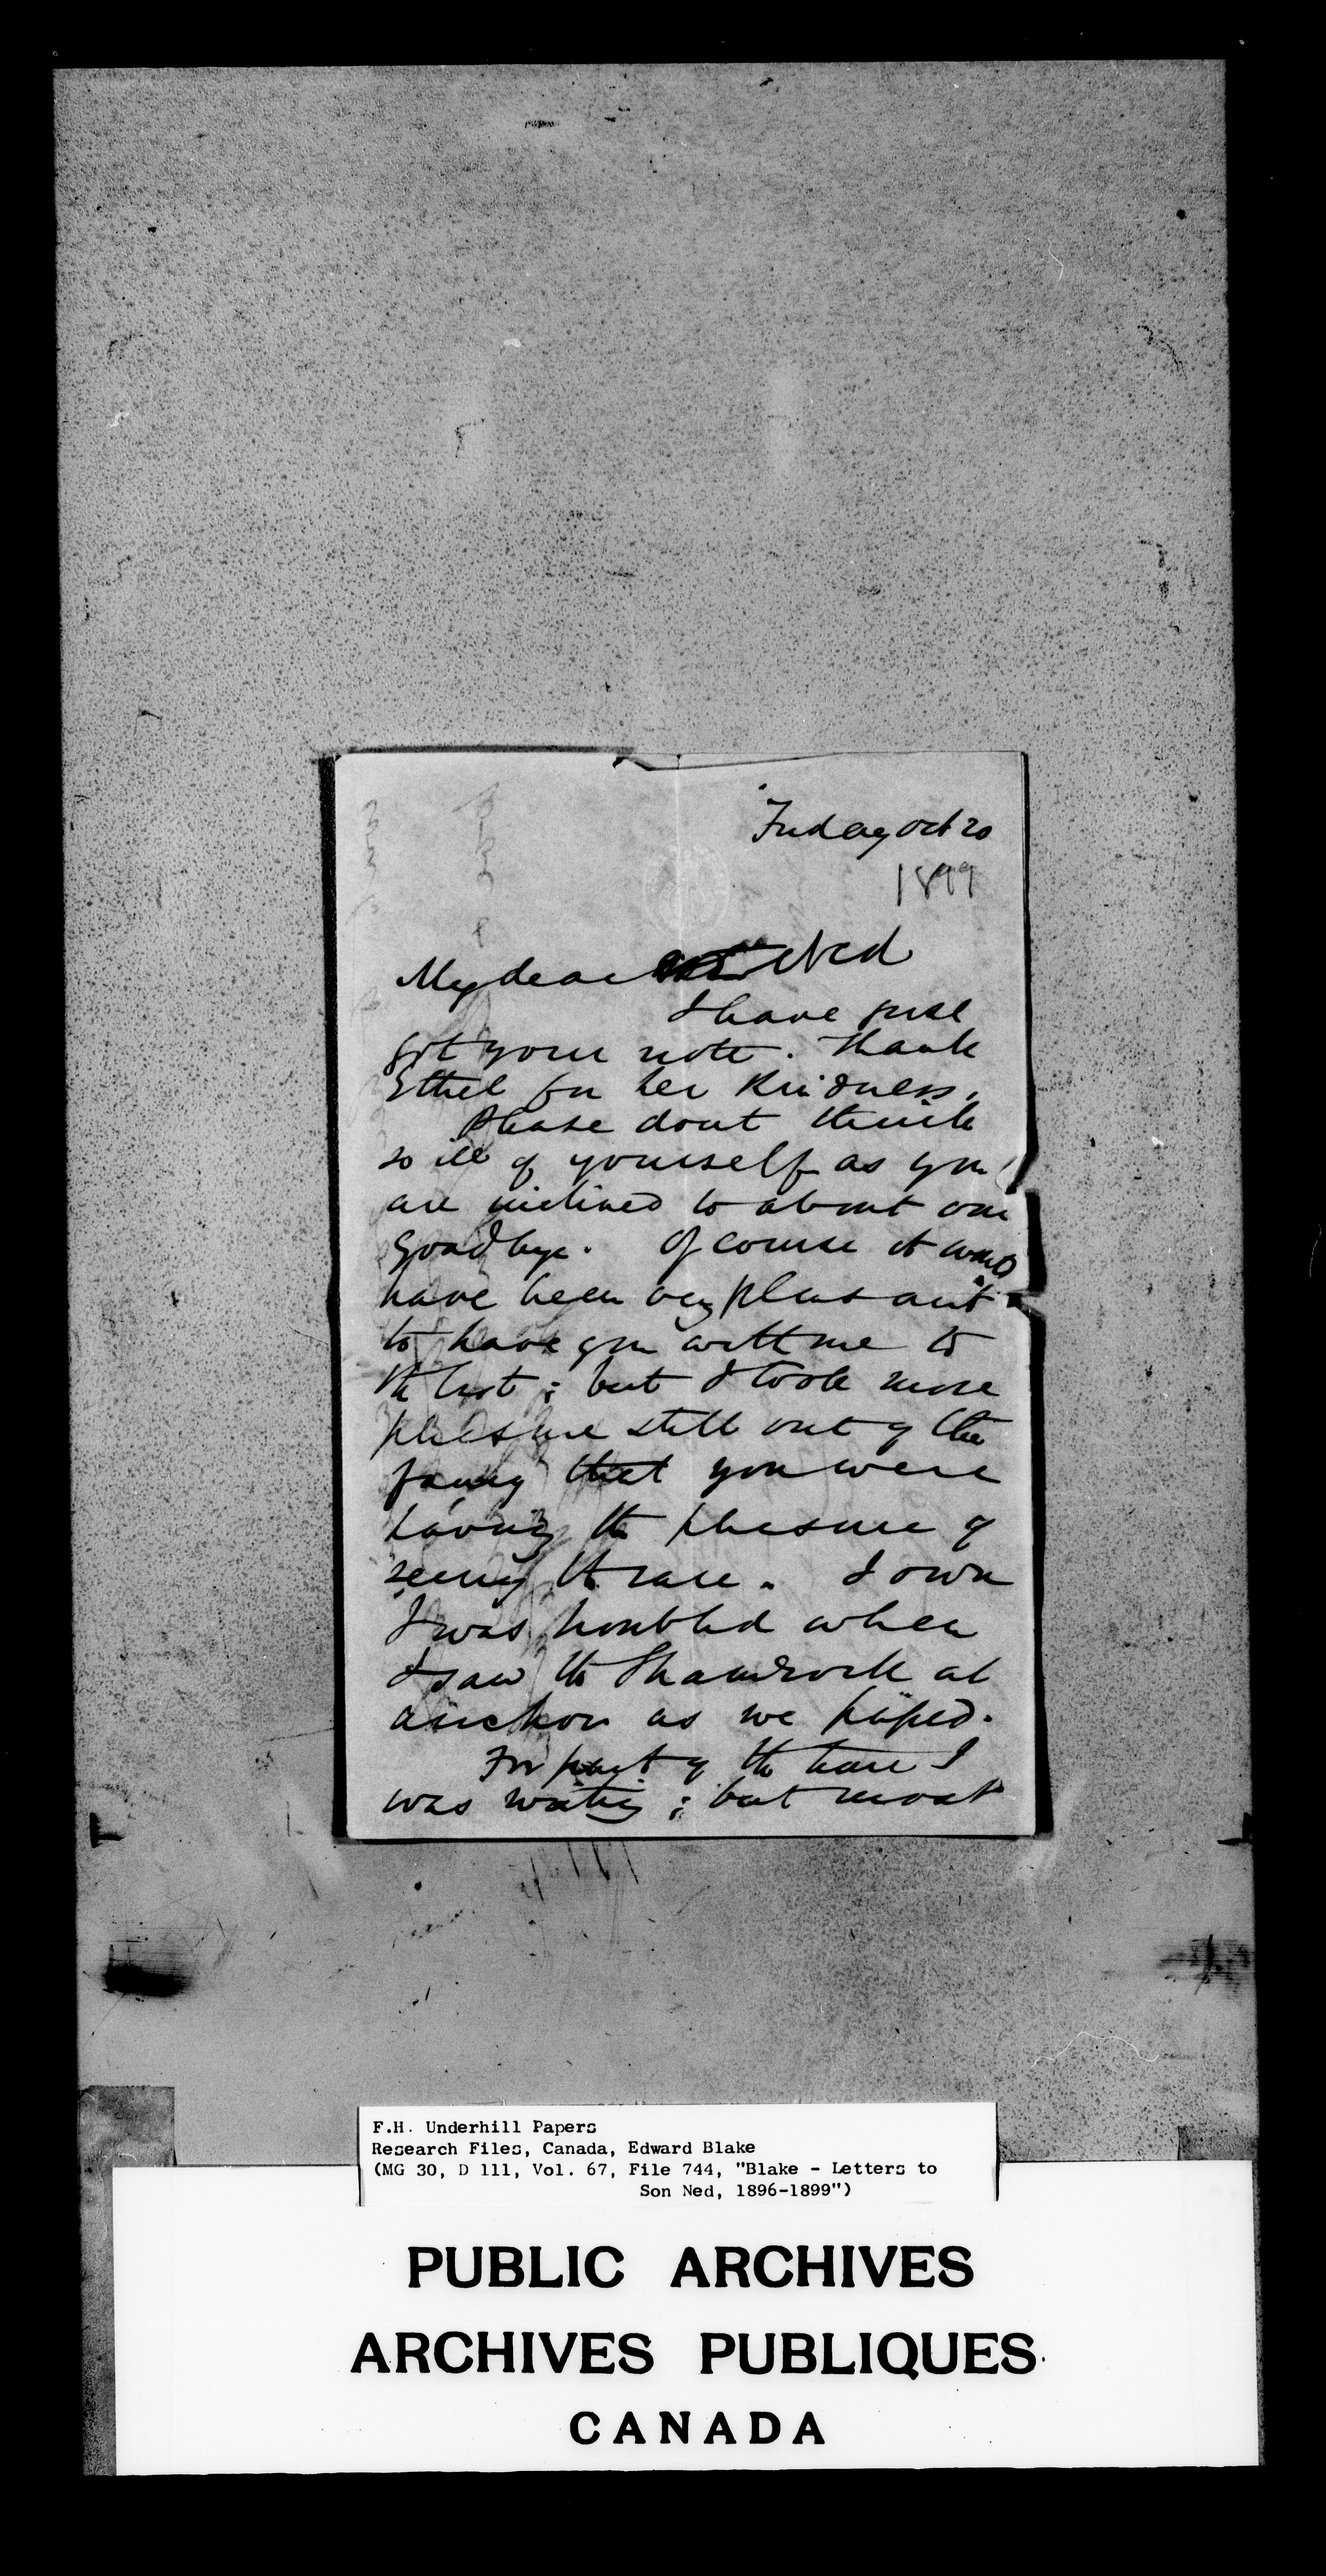 Friday Oct 20
1899
My dear Ned
I have just
got your note. Thank
Ethel for her kindness.
Please dont think
so ill of yourself as you
are inclined to about our
goodbye. Of course it would
have been very pleasant
to have you with me to
the last; but I took more
pleasure still out of the
fancy that you were
having the pleasure of
seeing the race. I own
I was troubled when
I saw the Shamrock at
anchor as we passed.
For part of the time I
was writing; but most
F.H. Underhill Papers
Research Files, Canada, Edward Blake
(MG 30, D 111, Vol. 67, File 744, "Blake - Letters to
Son Ned, 1896-1899")
PUBLIC ARCHIVES
ARCHIVES PUBLIQUES
CANADA